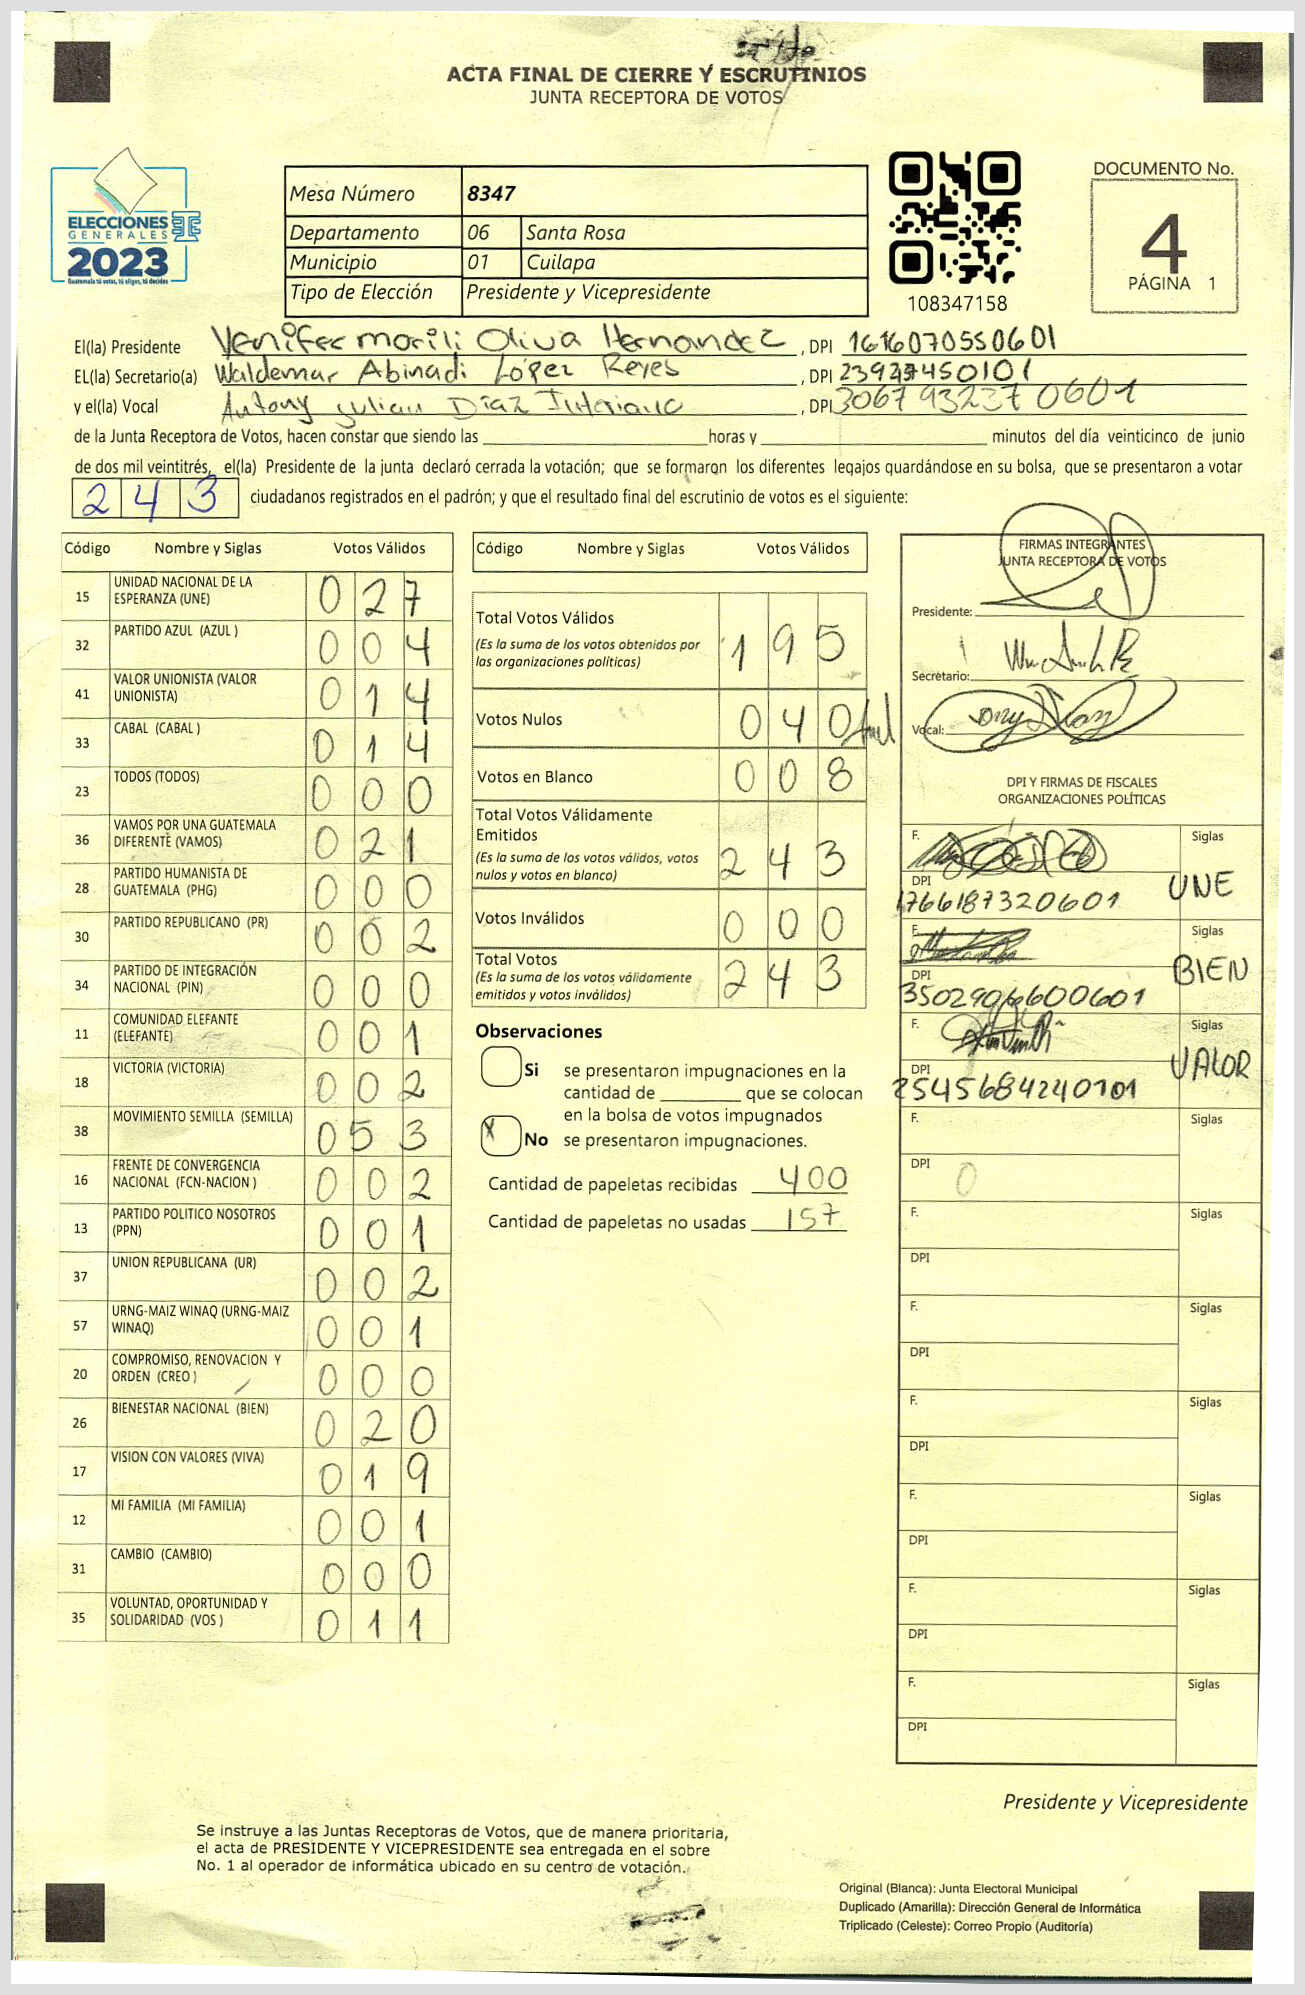 ACTA FINAL DE CIERRE Y ESCRUTINIOS
JUNTA RECEPTORA DE VOTOS
ELECCIONES
GENERALES
2023
Guatemala tú votas, tú eliges, tú decides
Mesa Número 8347
Departamento 06 Santa Rosa
Municipio 01 Cuilapa
Tipo de Elección Presidente y Vicepresidente
108347158
DOCUMENTO No.
4
PÁGINA 1
El(la) Presidente Yenifer marili Oliva Hernandez, DPI 1616070550601
EL(la) Secretario(a) Waldemar Abinadi López Reyes, DPI
y el(la) Vocal Antony julian Díaz Interiano, DPI 3067932370601
de la Junta Receptora de Votos, hacen constar que siendo las horas y minutos del día veinticinco de junio
de dos mil veintitrés, el(la) Presidente de la junta declaró cerrada la votación; que se formaron los diferentes legajos guardándose en su bolsa, que se presentaron a votar
243 ciudadanos registrados en el padrón; y que el resultado final del escrutinio de votos es el siguiente:
Código Nombre y Siglas Votos Válidos
15 UNIDAD NACIONAL DE LA ESPERANZA (UNE) 027
32 PARTIDO AZUL (AZUL ) 004
41 VALOR UNIONISTA (VALOR UNIONISTA) 014
33 CABAL (CABAL ) 014
23 TODOS (TODOS) 000
36 VAMOS POR UNA GUATEMALA DIFERENTE (VAMOS) 021
28 PARTIDO HUMANISTA DE GUATEMALA (PHG) 000
30 PARTIDO REPUBLICANO (PR) 002
34 PARTIDO DE INTEGRACIÓN NACIONAL (PIN) 000
11 COMUNIDAD ELEFANTE (ELEFANTE) 001
18 VICTORIA (VICTORIA) 002
38 MOVIMIENTO SEMILLA (SEMILLA) 053
16 FRENTE DE CONVERGENCIA NACIONAL (FCN-NACION ) 002
13 PARTIDO POLITICO NOSOTROS (PPN) 001
37 UNION REPUBLICANA (UR) 002
57 URNG-MAIZ WINAQ (URNG-MAIZ WINAQ) 001
20 COMPROMISO, RENOVACION Y ORDEN (CREO ) 000
26 BIENESTAR NACIONAL (BIEN) 020
17 VISION CON VALORES (VIVA) 019
12 MI FAMILIA (MI FAMILIA) 001
31 CAMBIO (CAMBIO) 000
35 VOLUNTAD, OPORTUNIDAD Y SOLIDARIDAD (VOS ) 011
Código Nombre y Siglas Votos Válidos
Total Votos Válidos 195
(Es la suma de los votos obtenidos por
las organizaciones políticas)
Votos Nulos 040
Votos en Blanco 008
Total Votos Válidamente
Emitidos 243
(Es la suma de los votos válidos, votos
nulos y votos en blanco)
Votos Inválidos 000
Total Votos 243
(Es la suma de los votos válidamente
emitidos y votos inválidos)
Observaciones
Si se presentaron impugnaciones en la
cantidad de que se colocan
en la bolsa de votos impugnados
X No se presentaron impugnaciones.
Cantidad de papeletas recibidas 400
Cantidad de papeletas no usadas 157
FIRMAS INTEGRANTES
JUNTA RECEPTORA DE VOTOS
Presidente:
Secretario:
Vocal:
DPI Y FIRMAS DE FISCALES
ORGANIZACIONES POLÍTICAS
F. Siglas
DPI 1766187320601 UNE
F. Siglas
DPI 3502906600601 BIEN
F. Siglas
DPI 2545684240101 VALOR
F. Siglas
DPI 0
F. Siglas
DPI
F. Siglas
DPI
F. Siglas
DPI
F. Siglas
DPI
F. Siglas
DPI
F. Siglas
DPI
Presidente y Vicepresidente
Se instruye a las Juntas Receptoras de Votos, que de manera prioritaria,
el acta de PRESIDENTE Y VICEPRESIDENTE sea entregada en el sobre
No. 1 al operador de informática ubicado en su centro de votación.
Original (Blanca): Junta Electoral Municipal
Duplicado (Amarilla): Dirección General de Informática
Triplicado (Celeste): Correo Propio (Auditoría)